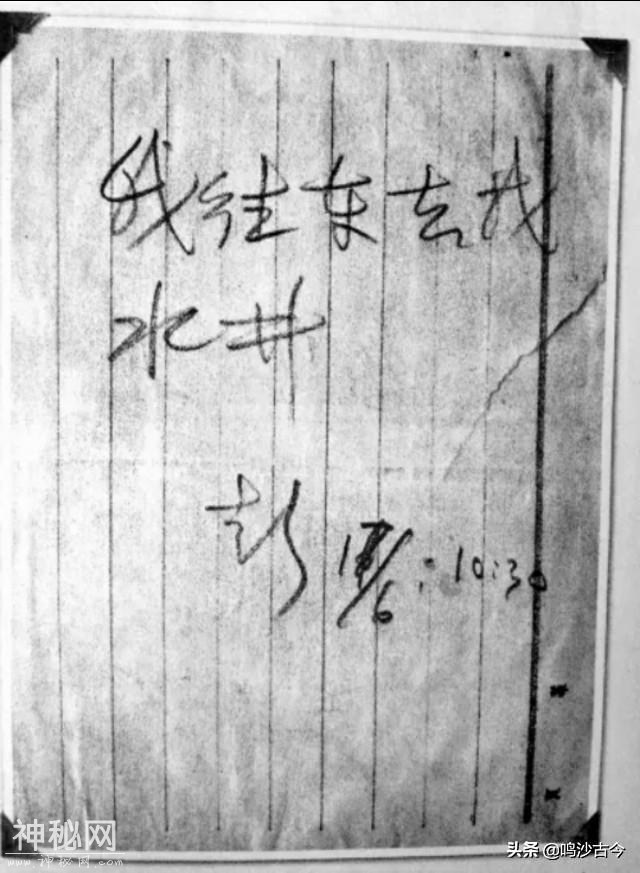 我往东去找
水井
彭 17/6:10:30
神秘网
www.神秘网.com
头条 @鸣沙古今